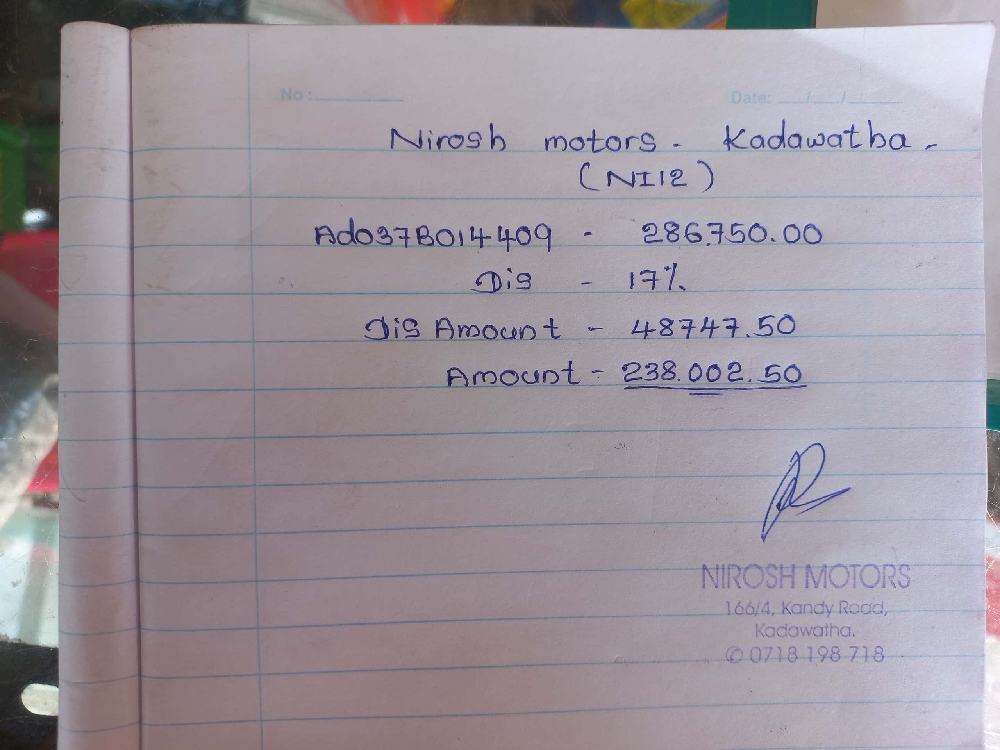 No : 
Date: __/__/____
Nirosh motors - Kadawatha -
(NI12)
Ad037B014409 - 286.750.00
Dis - 17%
Dis Amount - 48747.50
Amount - 238.002.50
NIROSH MOTORS
166/4, Kandy Road,
Kadawatha.
✆ 0718 198 718